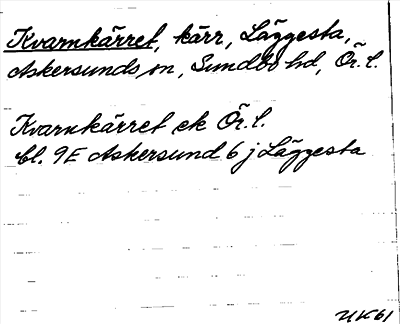 Kvarnkärret, kärr, Läggesta,
Askersunds sn, Sundbo hd, Ör. l.
Kvarnkärret ek Ör. l.
bl. 9E Askersund 6 j Läggesta
UK61